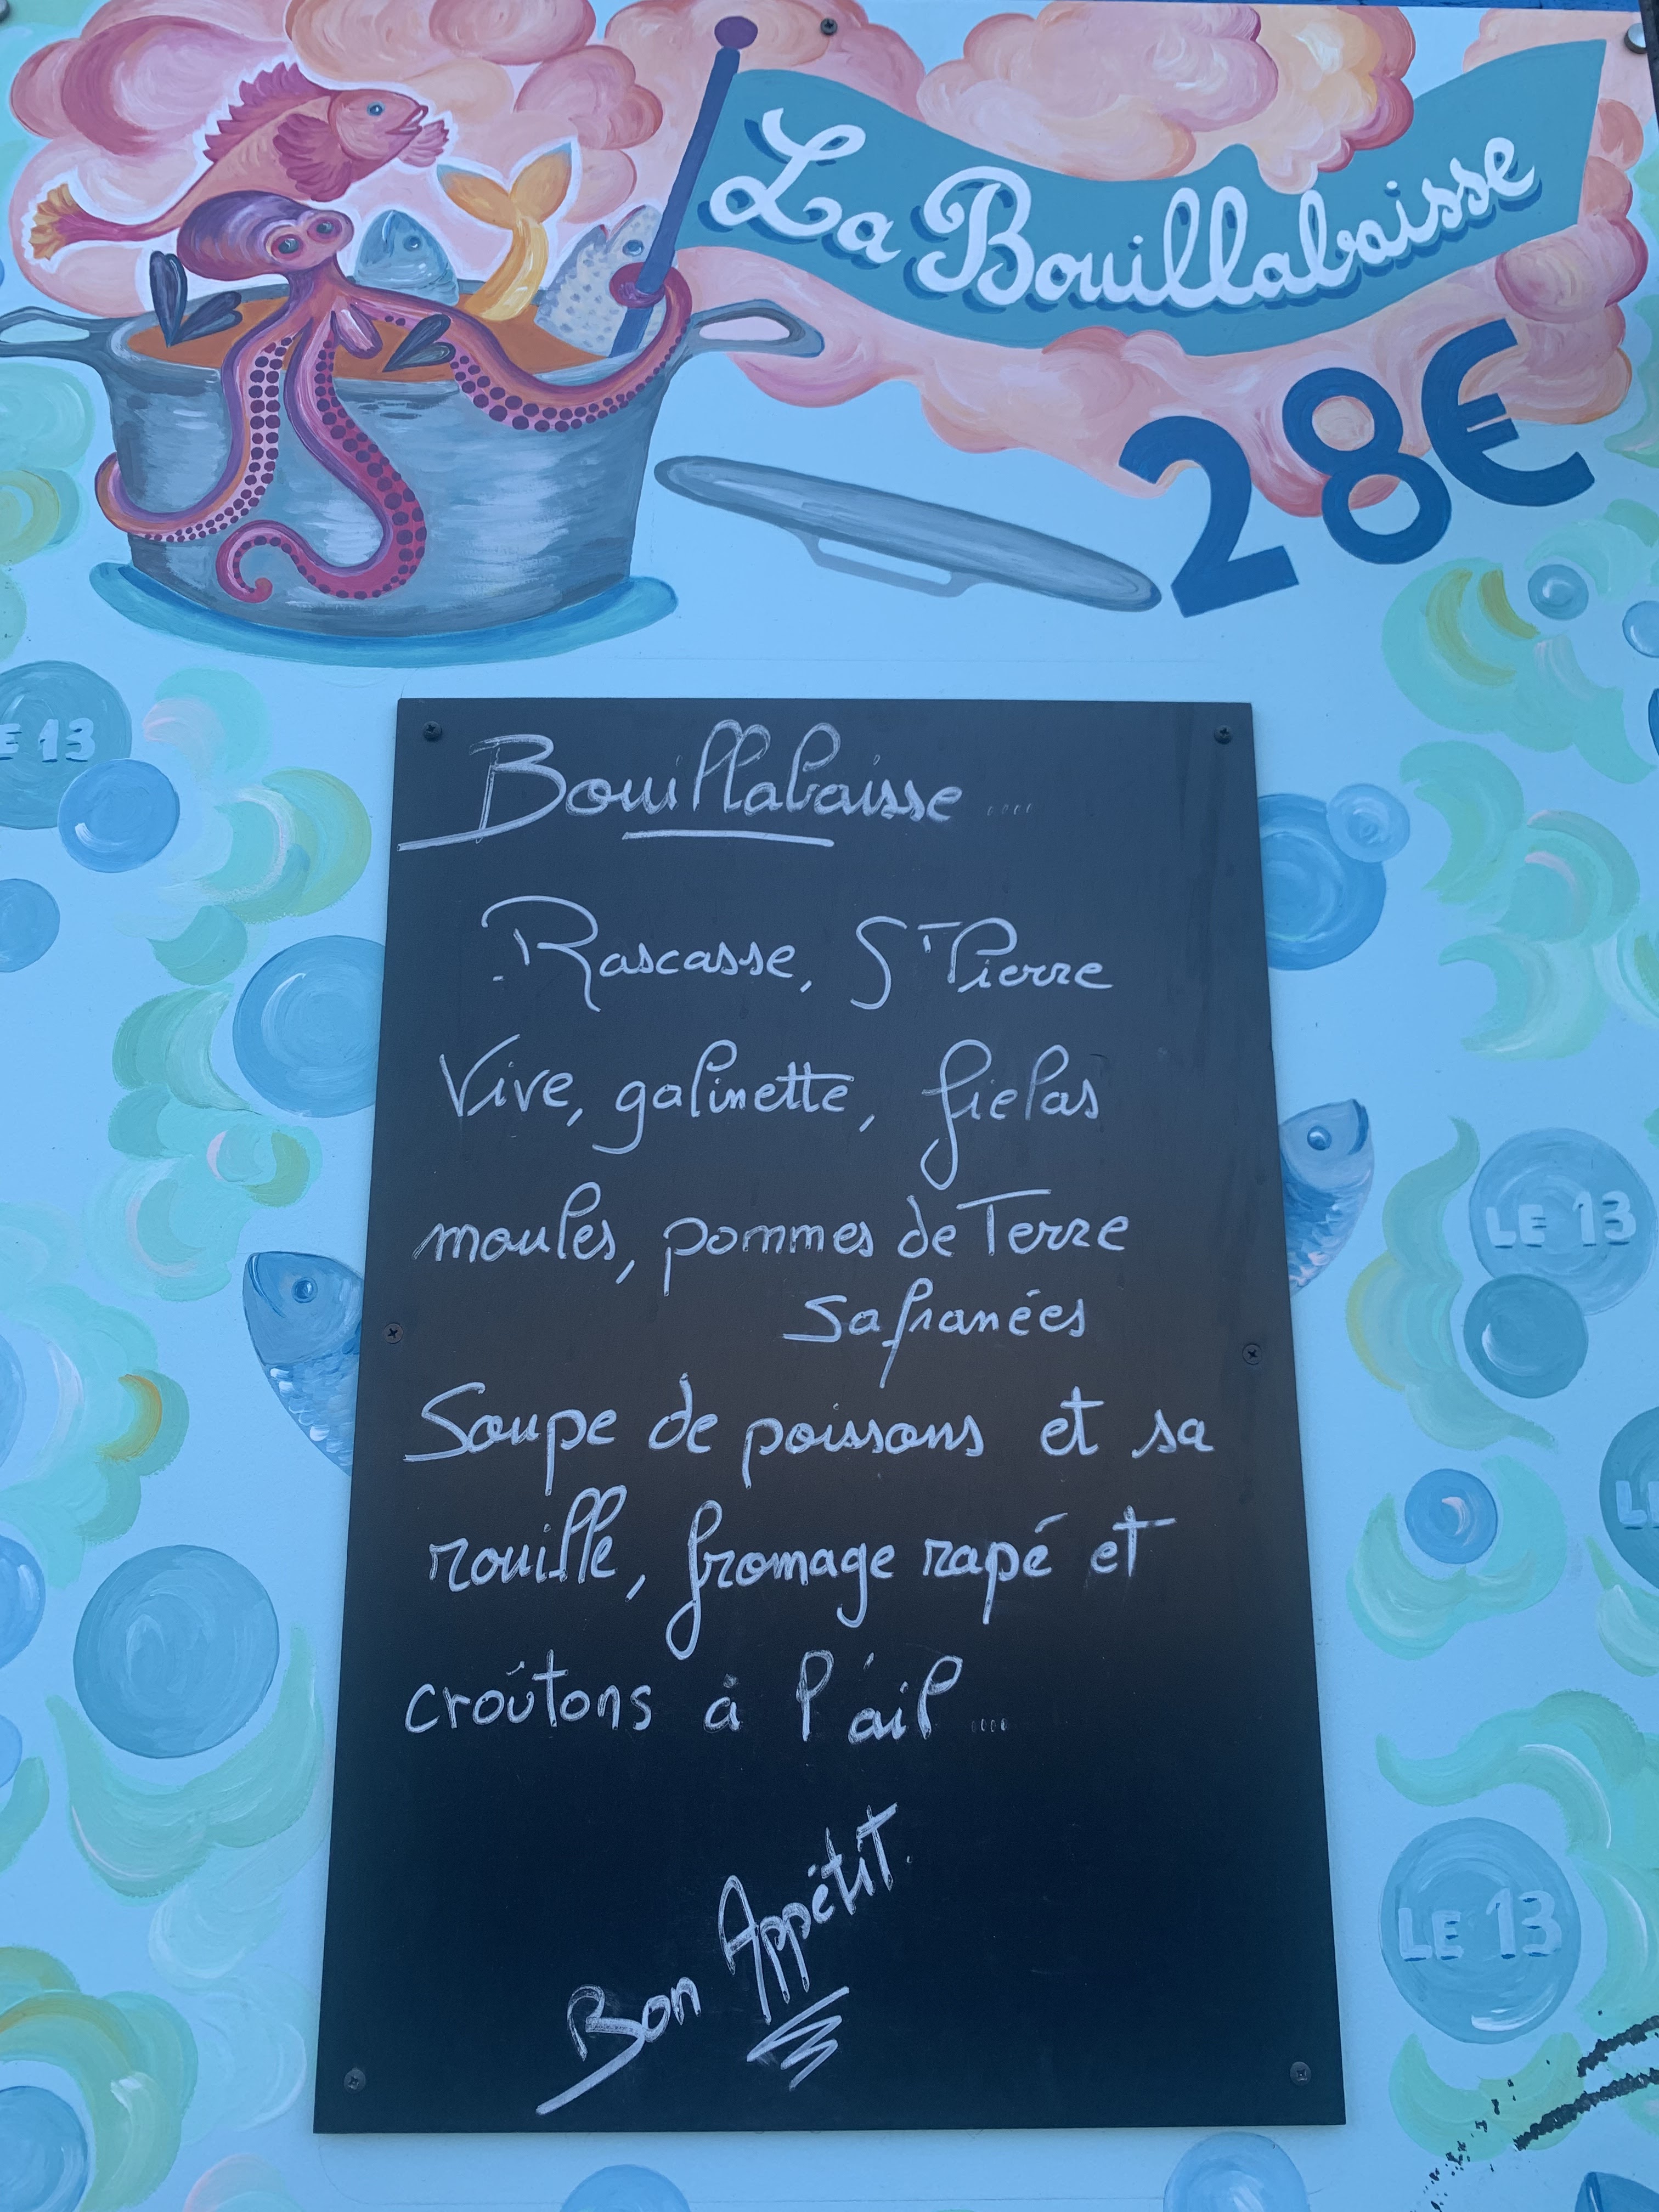 La Bouillabaisse
28€
E 13
Bouillabaisse ....
Rascasse, St Pierre
Vive, galinette, fielas
LE 13
moules, pommes de Terre
Safranées
Soupe de poissons et sa
rouille, fromage rapé et
croûtons à l'ail ....
LE 13
Bon Appétit